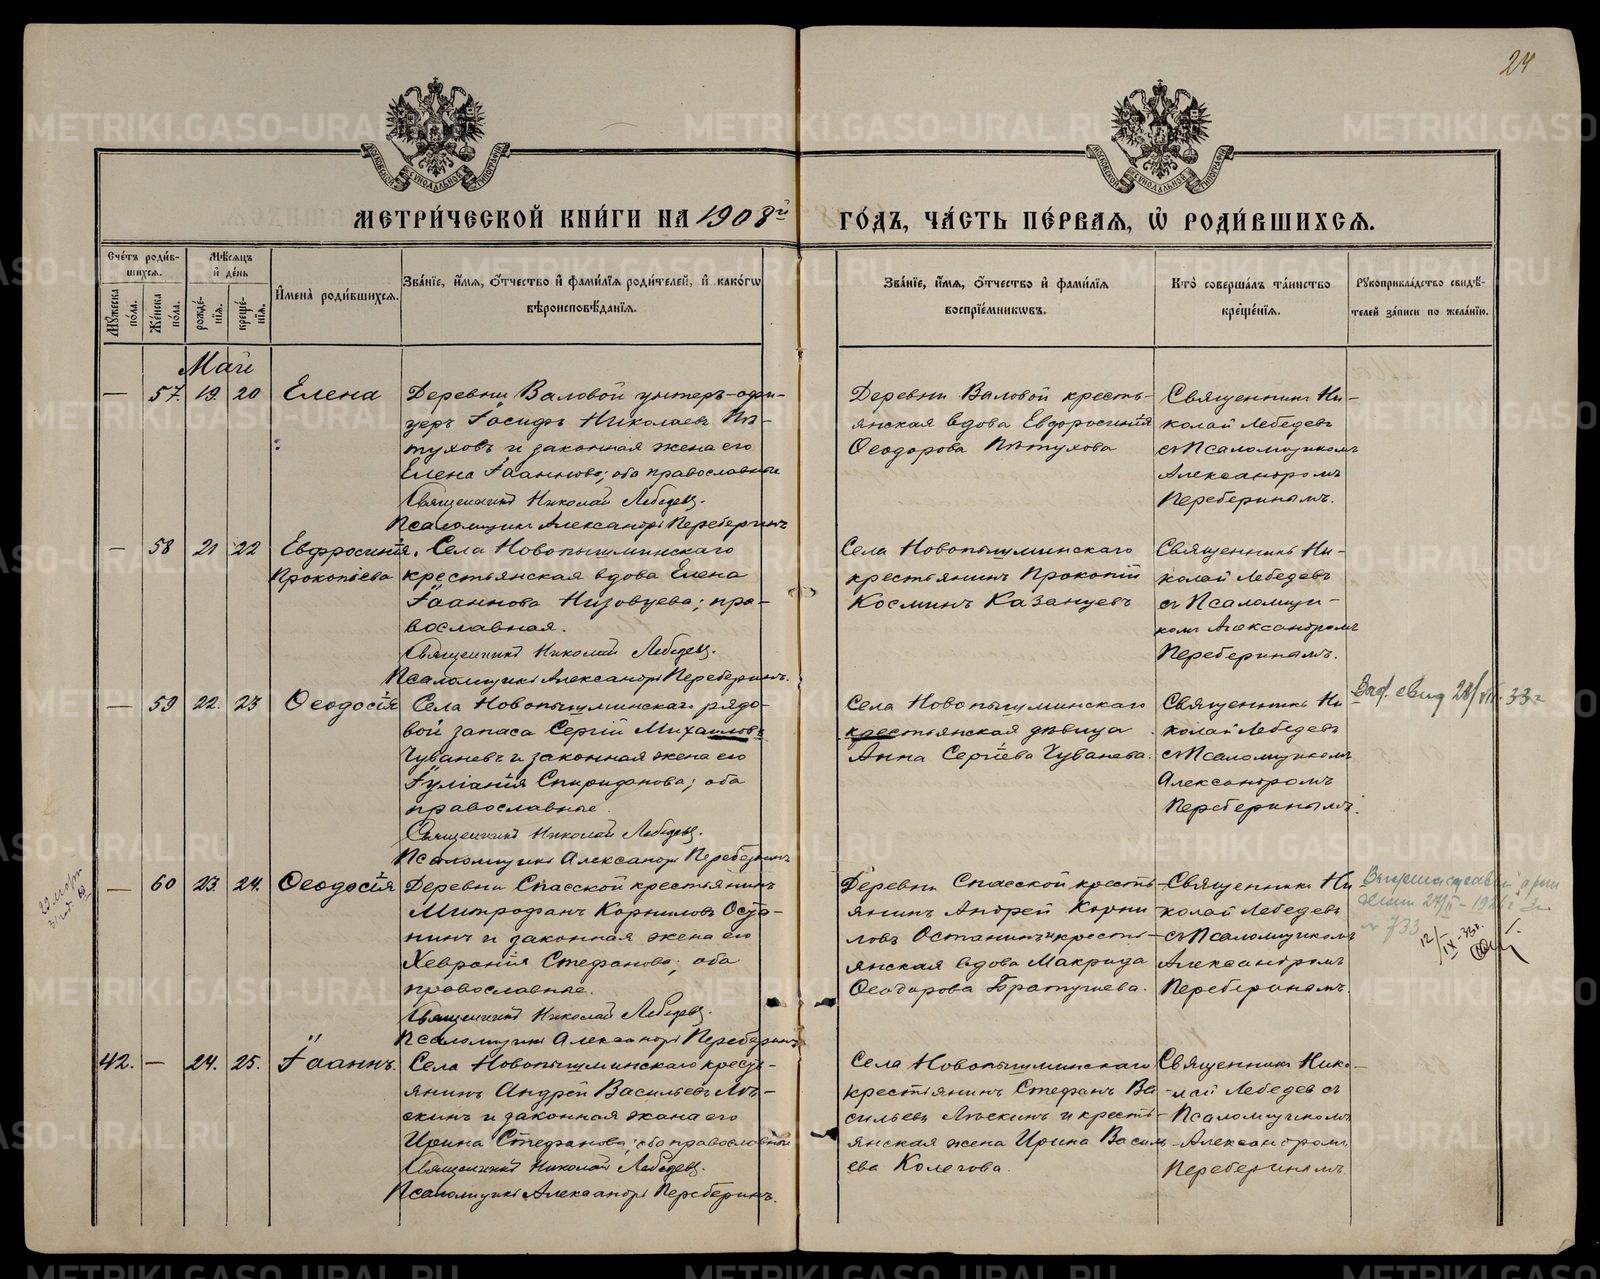 24
МЕТРИ́ЧЕСКОЙ КНИ́ГИ НА 1908й
ГО́ДЪ, ЧА́СТЬ ПЕ́РВАЯ, Ѡ РОДИ́ВШИХСЯ.
Сче́тъ роди́в-
шихся.
Мѣ́сяцъ
и де́нь
Мꙋ́жеска
по́ла.
Же́нска
по́ла.
рожде́-
нїя.
креще́-
нїя.
Имена̀ роди́вшихся.
Зва́нїе, и́мя, о́тчество и фами́лїя роди́телей, и како́гѡ
вѣроисповѣ́данїя.
Зва́нїе, и́мя, о́тчество и фами́лїя
воспрїе́мникѡвъ.
Кто̀ соверша́лъ та́инство
креще́нїя.
Рꙋкоприкла́дство свидѣ́-
телей за́писи по жела́нїю.
Май
— 57. 19. 20 Елена
Деревни Валовой унтеръ-офи-
церъ Іосифъ Николаевъ Пѣ-
туховъ и законная жена его
Елена Іоаннова; оба православные
Священникъ Николай Лебедевъ.
Псаломщикъ Александръ Переберинъ
Деревни Валовой кресть-
янская вдова Евфросинія
Ѳеодорова Пѣтухова
Священникъ Ни-
колай Лебедевъ
съ Псаломщикомъ
Александромъ
Переберинымъ.
— 58 21 22 Евфросинія
Прокопіева
Села Новопышминскаго
крестьянская вдова Елена
Іоаннова Низовцева; пра-
вославная.
Священникъ Николай Лебедевъ.
Псаломщикъ Александръ Переберинъ.
Села Новопышминскаго
крестьянинъ Прокопій
Косминъ Казанцевъ
Священникъ Ни-
колай Лебедевъ
съ Псаломщи-
комъ Александромъ
Переберинымъ.
— 59 22. 23 Ѳеодосія
Села Новопышминскаго рядо-
вой запаса Сергій Михаиловъ
Чуваневъ и законная жена его
Іуліанія Спиридонова; оба
православные.
Священникъ Николай Лебедевъ.
Псаломщикъ Александръ Переберинъ
Села Новопышминскаго
крестьянская дѣвица
Анна Сергіева Чуванева.
Священникъ Ни
колай Лебедевъ
съ Псаломщикомъ
Александромъ
Переберинымъ.
свид 28/VII-33г
— 60 23. 24. Ѳеодосія
Деревни Спасской крестьянинъ
Митрофанъ Корниловъ Оста-
нинъ и законная жена его
Хевронія Стефанова; оба
православные.
Священникъ Николай Лебедевъ.
Псаломщикъ Александръ Переберинъ
Деревни Спасской кресть-
янинъ Андрей Корни
ловъ Останинъ и кресть-
янская вдова Макрида
Ѳеодорова Братушева.
Священникъ Ни
колай Лебедевъ
съ Псаломщикомъ
Александромъ
Переберинымъ.
№ 733
12/IX-33г.
42. — 24. 25. Іоаннъ.
Села Новопышминскаго кресть-
янинъ Андрей Васильевъ Лѣ-
скинъ и законная жена его
Ирина Стефанова; оба православные
Священникъ Николай Лебедевъ.
Псаломщикъ Александръ Переберинъ.
Села Новопышминскаго
крестьянинъ Стефанъ Ва-
сильевъ Лѣскинъ и кресть-
янская жена Ирина Василь
ева Колегова.
Священникъ Нико-
лай Лебедевъ съ
Псаломщикомъ
Александромъ
Переберинымъ.
METRIKI.GASO-URAL.RU